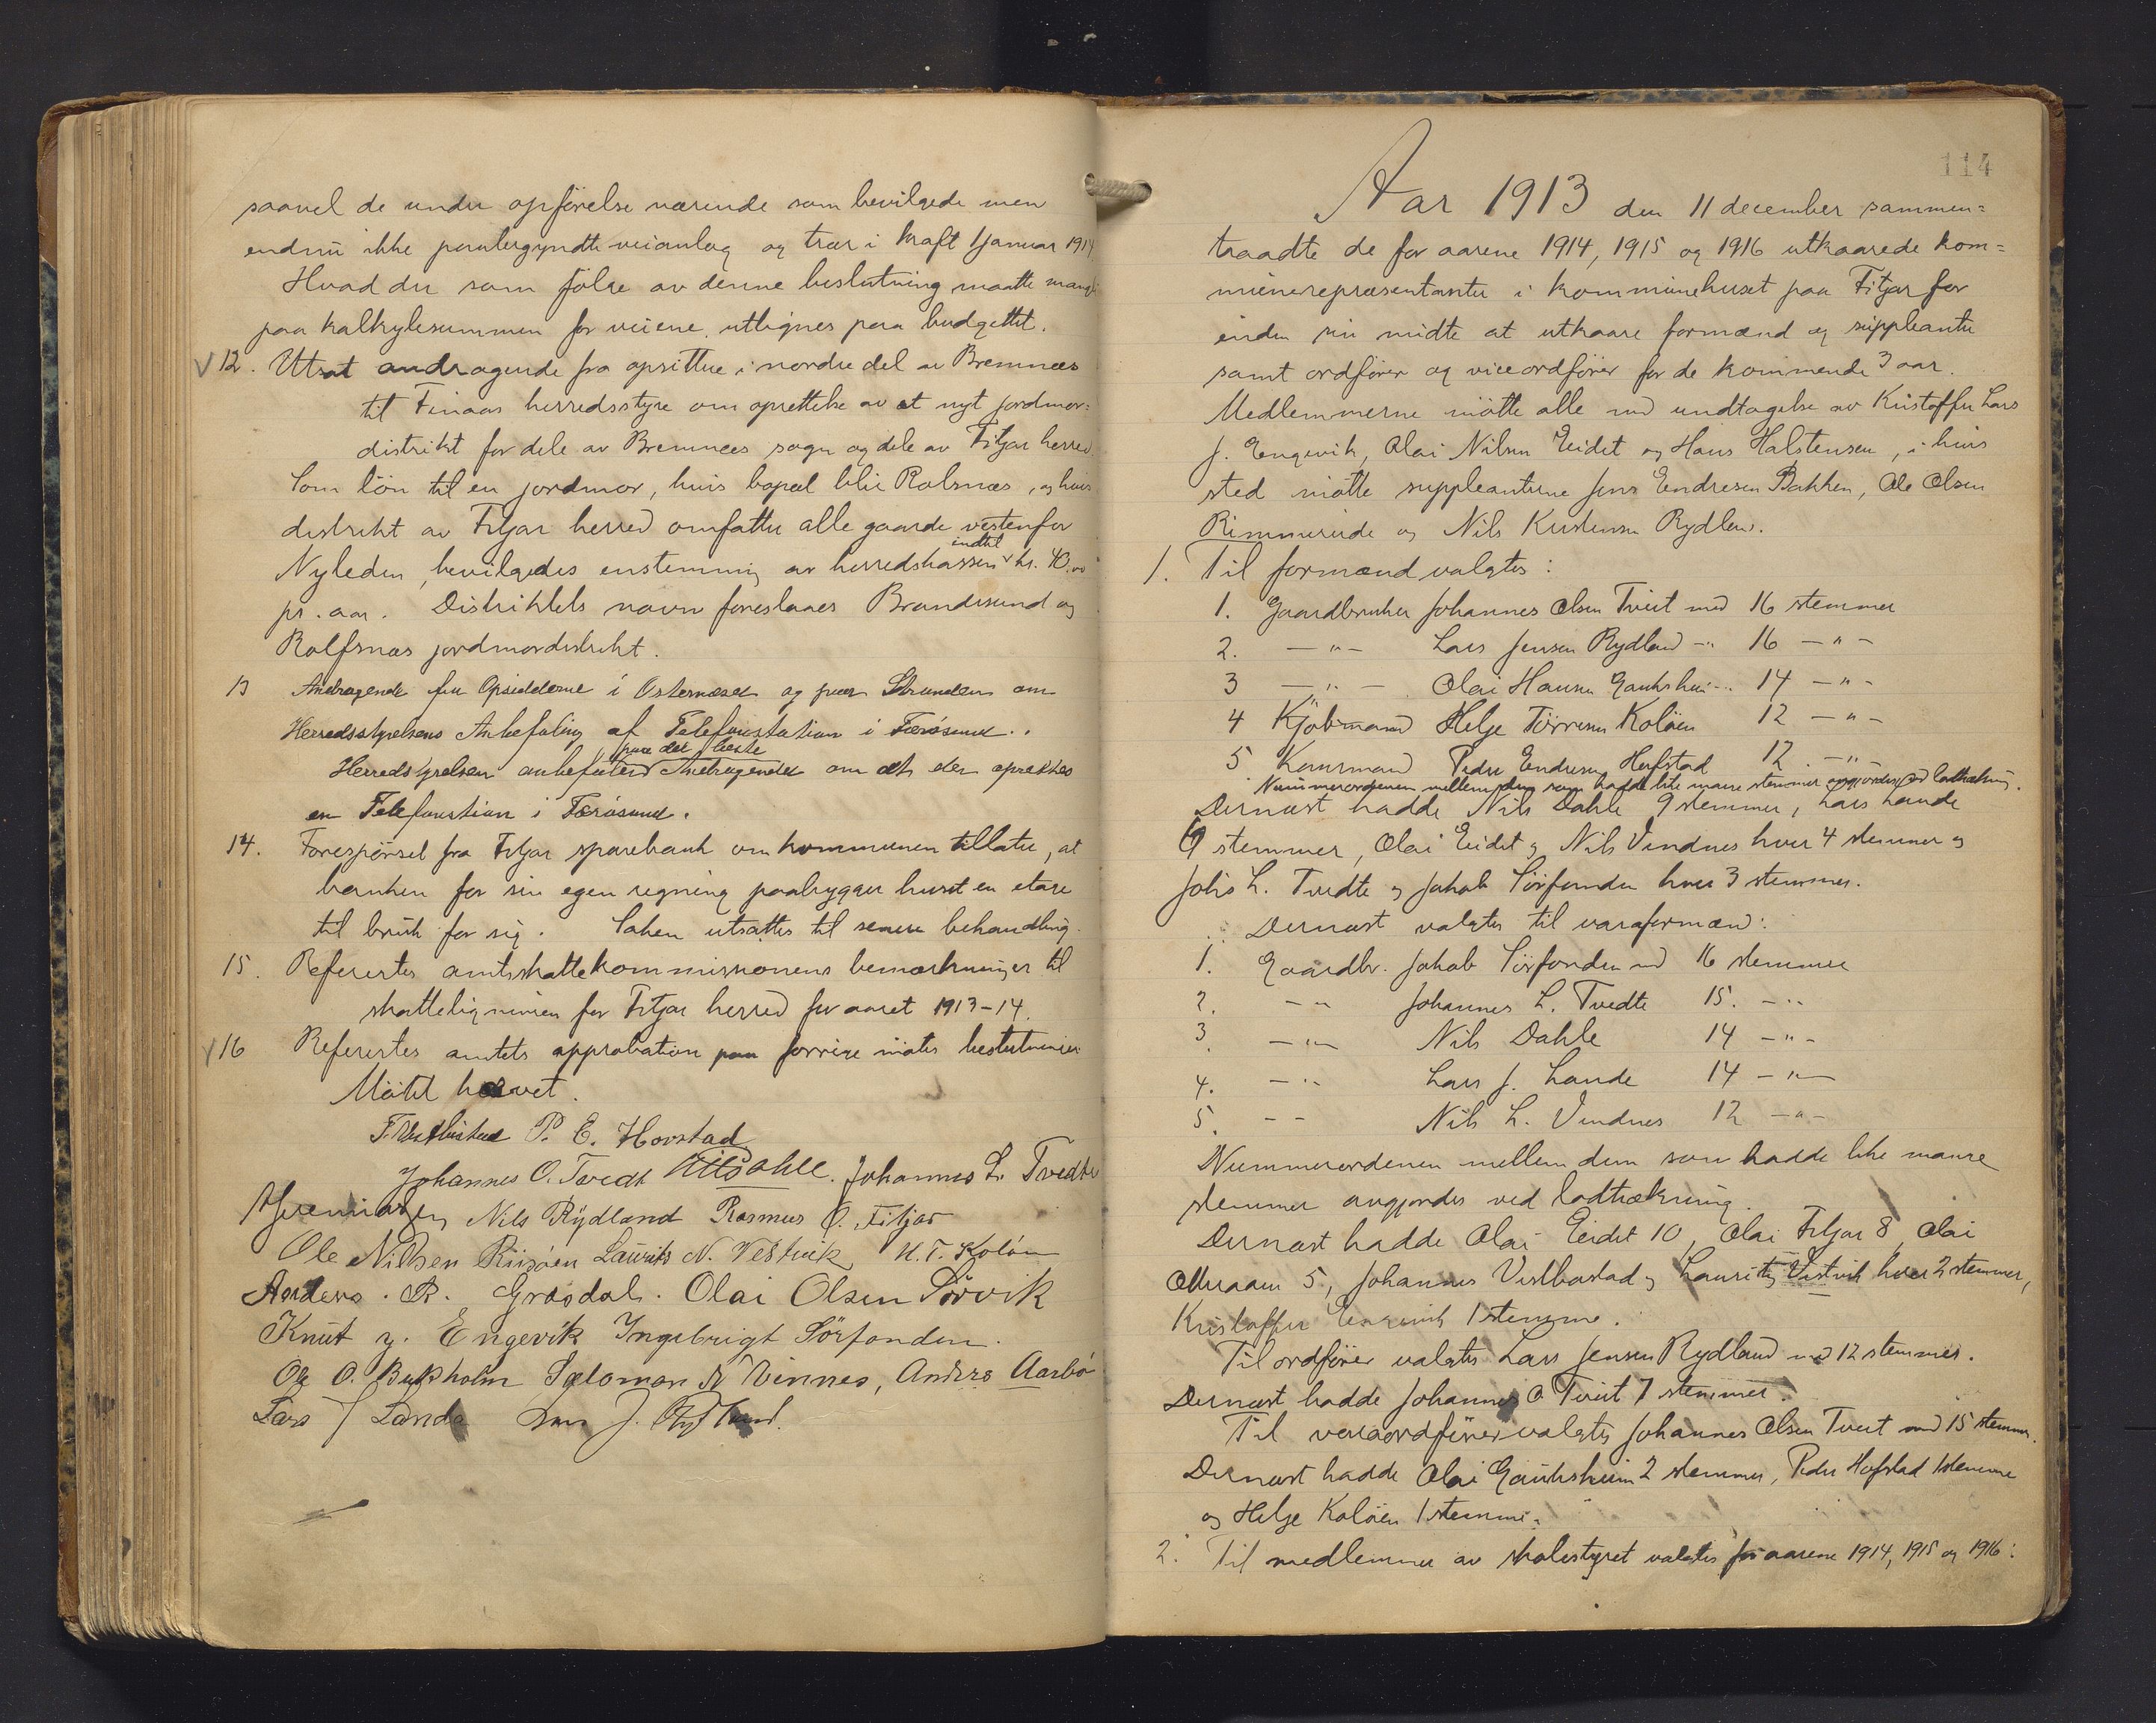 saavel de under opförelse værende som bevilgede men
endnu ikke paabegyndte veianlæg og trær i kraft 1 januar 1914.
Hvad der som fölge av denne beslutning maatte mangle
paa kalkylesummen for veiene utlignes paa budgettet.
12. Utsat andragende fra opsittere i nordre del av Bremnæs
til Finaas herredsstyre om oprettelse av et nyt jordmor-
distrikt for dele av Bremnæs sogn og dele av Fitjar herred.
Som lön til en jordmor, hvis bopæl blir Rolsnæs, og hvis
distrikt av Fitjar herred omfatter alle gaarde vestenfor
Nyleden, bevilgedes enstemmig av herredskassen indtil kr. 40.00
pr. aar. Distriktets navn foreslaaes Brandesund og
Rolfsnæs jordmordistrikt.
13 Andragende fra Opsidderne i Osternæset og paa Stranden om
Herredsstyrelsens Anbefaling af Telefonstation i Færösund.
Herredstyrelsen anbefaler paa det beste Andragendet om at der oprettes
en Telefonstion i Færösund.
14. Forespörsel fra Fitjar sparebank om kommunen tillater, at
banken for sin egen regning paabygger huset en etage
til bruk for sig. Saken utsattes til senere behandling.
15. Referertes amtsskattekommissionens bemærkninger til
skatteligningen for Fitjar herred for aaret 1913-14.
16 Referertes amtets approbation paa forrige mötes beslutninger.
Mötet hævet.
P. E. Hovstad
Johannes O. Tvedt Nils Dahle. Johannes L. Tvedte
Nils Rydland Rasmus O. Fitjar
Ole Nilsen Riisöen Laurits N. Vestvik H. T. Kolöen
Anders. R. Gräsdal. Olai Olsen Sörvik
Knut J. Engevik Ingebrigt Sörfonden.
Ole O. Bukholm Salomon N Vinnes, Anders Aarbö
Lars J Landa Lars J. Rydland.
114
Aar 1913 den 11 december sammen=
traadte de for aarene 1914, 1915 og 1916 utkaarede kom=
munerepræsentanter i kommunehuset paa Fitjar for
inden sin midte at utkaare formænd og suppleanter
samt ordförer og viceordförer for de kommende 3 aar.
Medlemmerne mötte alle med undtagelse av Kristoffer Lars
J. Engevik, Olai Nilsen Eidet og Hans Halstensen, i hvis
sted mötte suppleanterne Jens Endresen Bakken, Ole Olsen
Rimmereide og Nils Kristensen Rydland.
1. Til formænd valgtes:
1. Gaardbruker Johannes Olsen Tveit med 16 stemmer
2. —"— Lars Jensen Rydland —" 16 —"—
3 —"— Olai Hansen Gaukshei— 14 —"—
4 Kjöbmand Helge Törresen Kolöen 12 —"—
5 Peder Endresen Hofstad 12 —"—
Nummerordenen mellem dem som hadde like mange stemmer avgjordes ved lodtrækning.
Dernæst hadde Nils Dahle 9 stemmer, Lars Lande
9 stemmer, Olai Eidet og Nils Vindnes hver 4 stemmer og
Johs L. Tvedte og Jakob Sörfonden hver 3 stemmer.
Dernæst valgtes til varaformænd:
1. Gaardbr. Jakob Sörfonden med 16 stemmer
2. —" Johannes L. Tvedte 15. —"
3. —"— Nils Dahle 14 —"—
4. —" Lars J. Lande 14 —"—
5. — — Nils L. Vindnes 12 —"—
Nummerordenen mellem dem som hadde like mange
stemmer avgjordes ved lodtrækning.
Dernæst hadde Olai Eidet 10, Olai Fitjar 8, Olai
5, Johannes Vestböstad og Laurits Vestvik hver 2 stemmer,
Kristoffer Engevik 1 stemme.
Til ordförer valgtes Lars Jensen Rydland med 12 stemmer.
Dernæst hadde Johannes O Tveit 7 stemmer.
Til varaordförer valgtes Johannes Olsen Tveit med 15 stemmer.
Dernæst hadde Olai Gauksheim 2 stemmer, Peder Hofstad 1 stemme
og Helge Kolöen 1 stemme.
2. Til medlemmer av skolestyret valgtes for aarene 1914, 1915 og 1916: